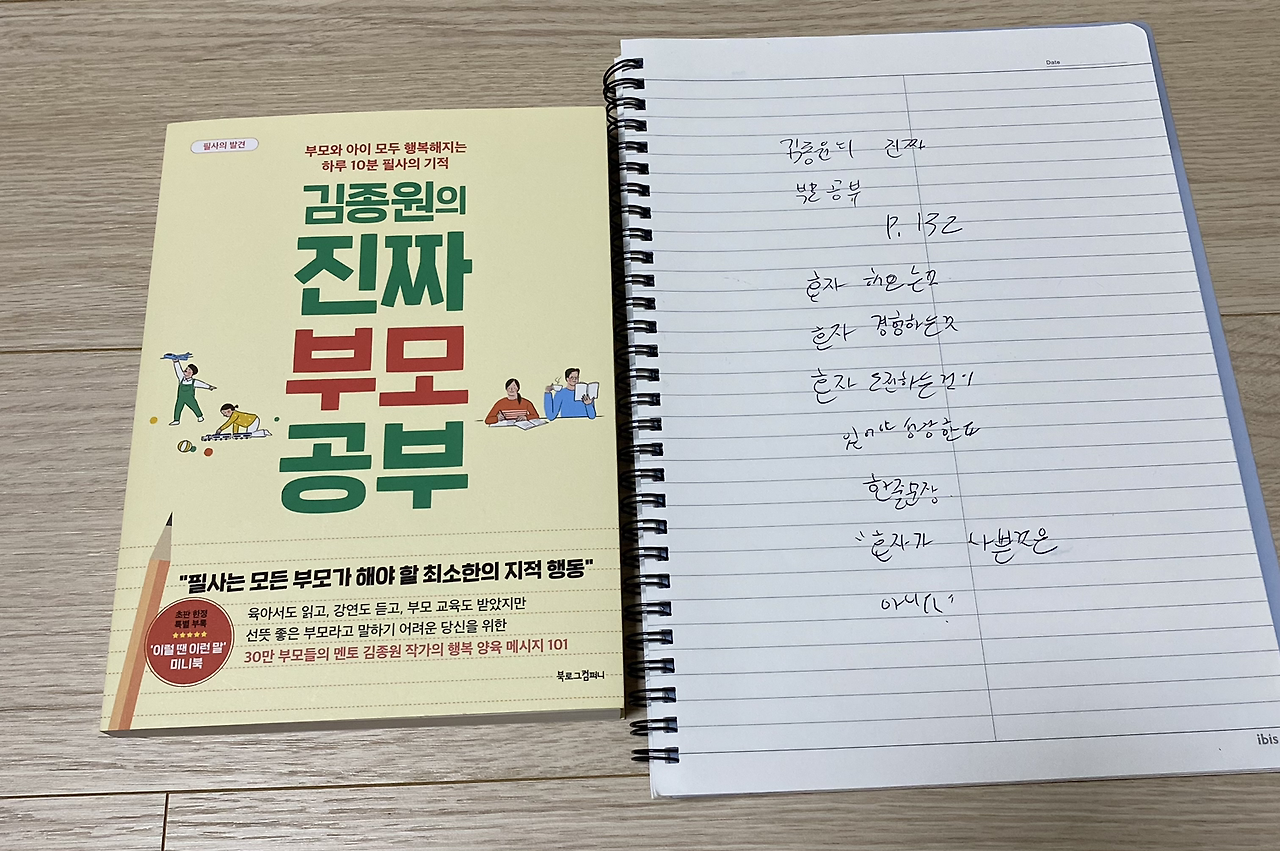 필사의 발견
부모와 아이 모두 행복해지는
하루 10분 필사의 기적
김종원의
진짜
부모
공부
"필사는 모든 부모가 해야 할 최소한의 지적 행동"
육아서도 읽고, 강연도 듣고, 부모 교육도 받았지만
선뜻 좋은 부모라고 말하기 어려운 당신을 위한
30만 부모들의 멘토 김종원 작가의 행복 양육 메시지 101
초판 한정
특별 부록
★★★★★
'이럴 땐 이런 말'
미니북
북로그컴퍼니
Date
김종원의 진짜
부모 공부
P. 132
혼자 해보는것
혼자 경험하는것
혼자 도전하는것이
있어야 성장한다
한줄문장
"혼자가 나쁜것은
아니다"
ibis